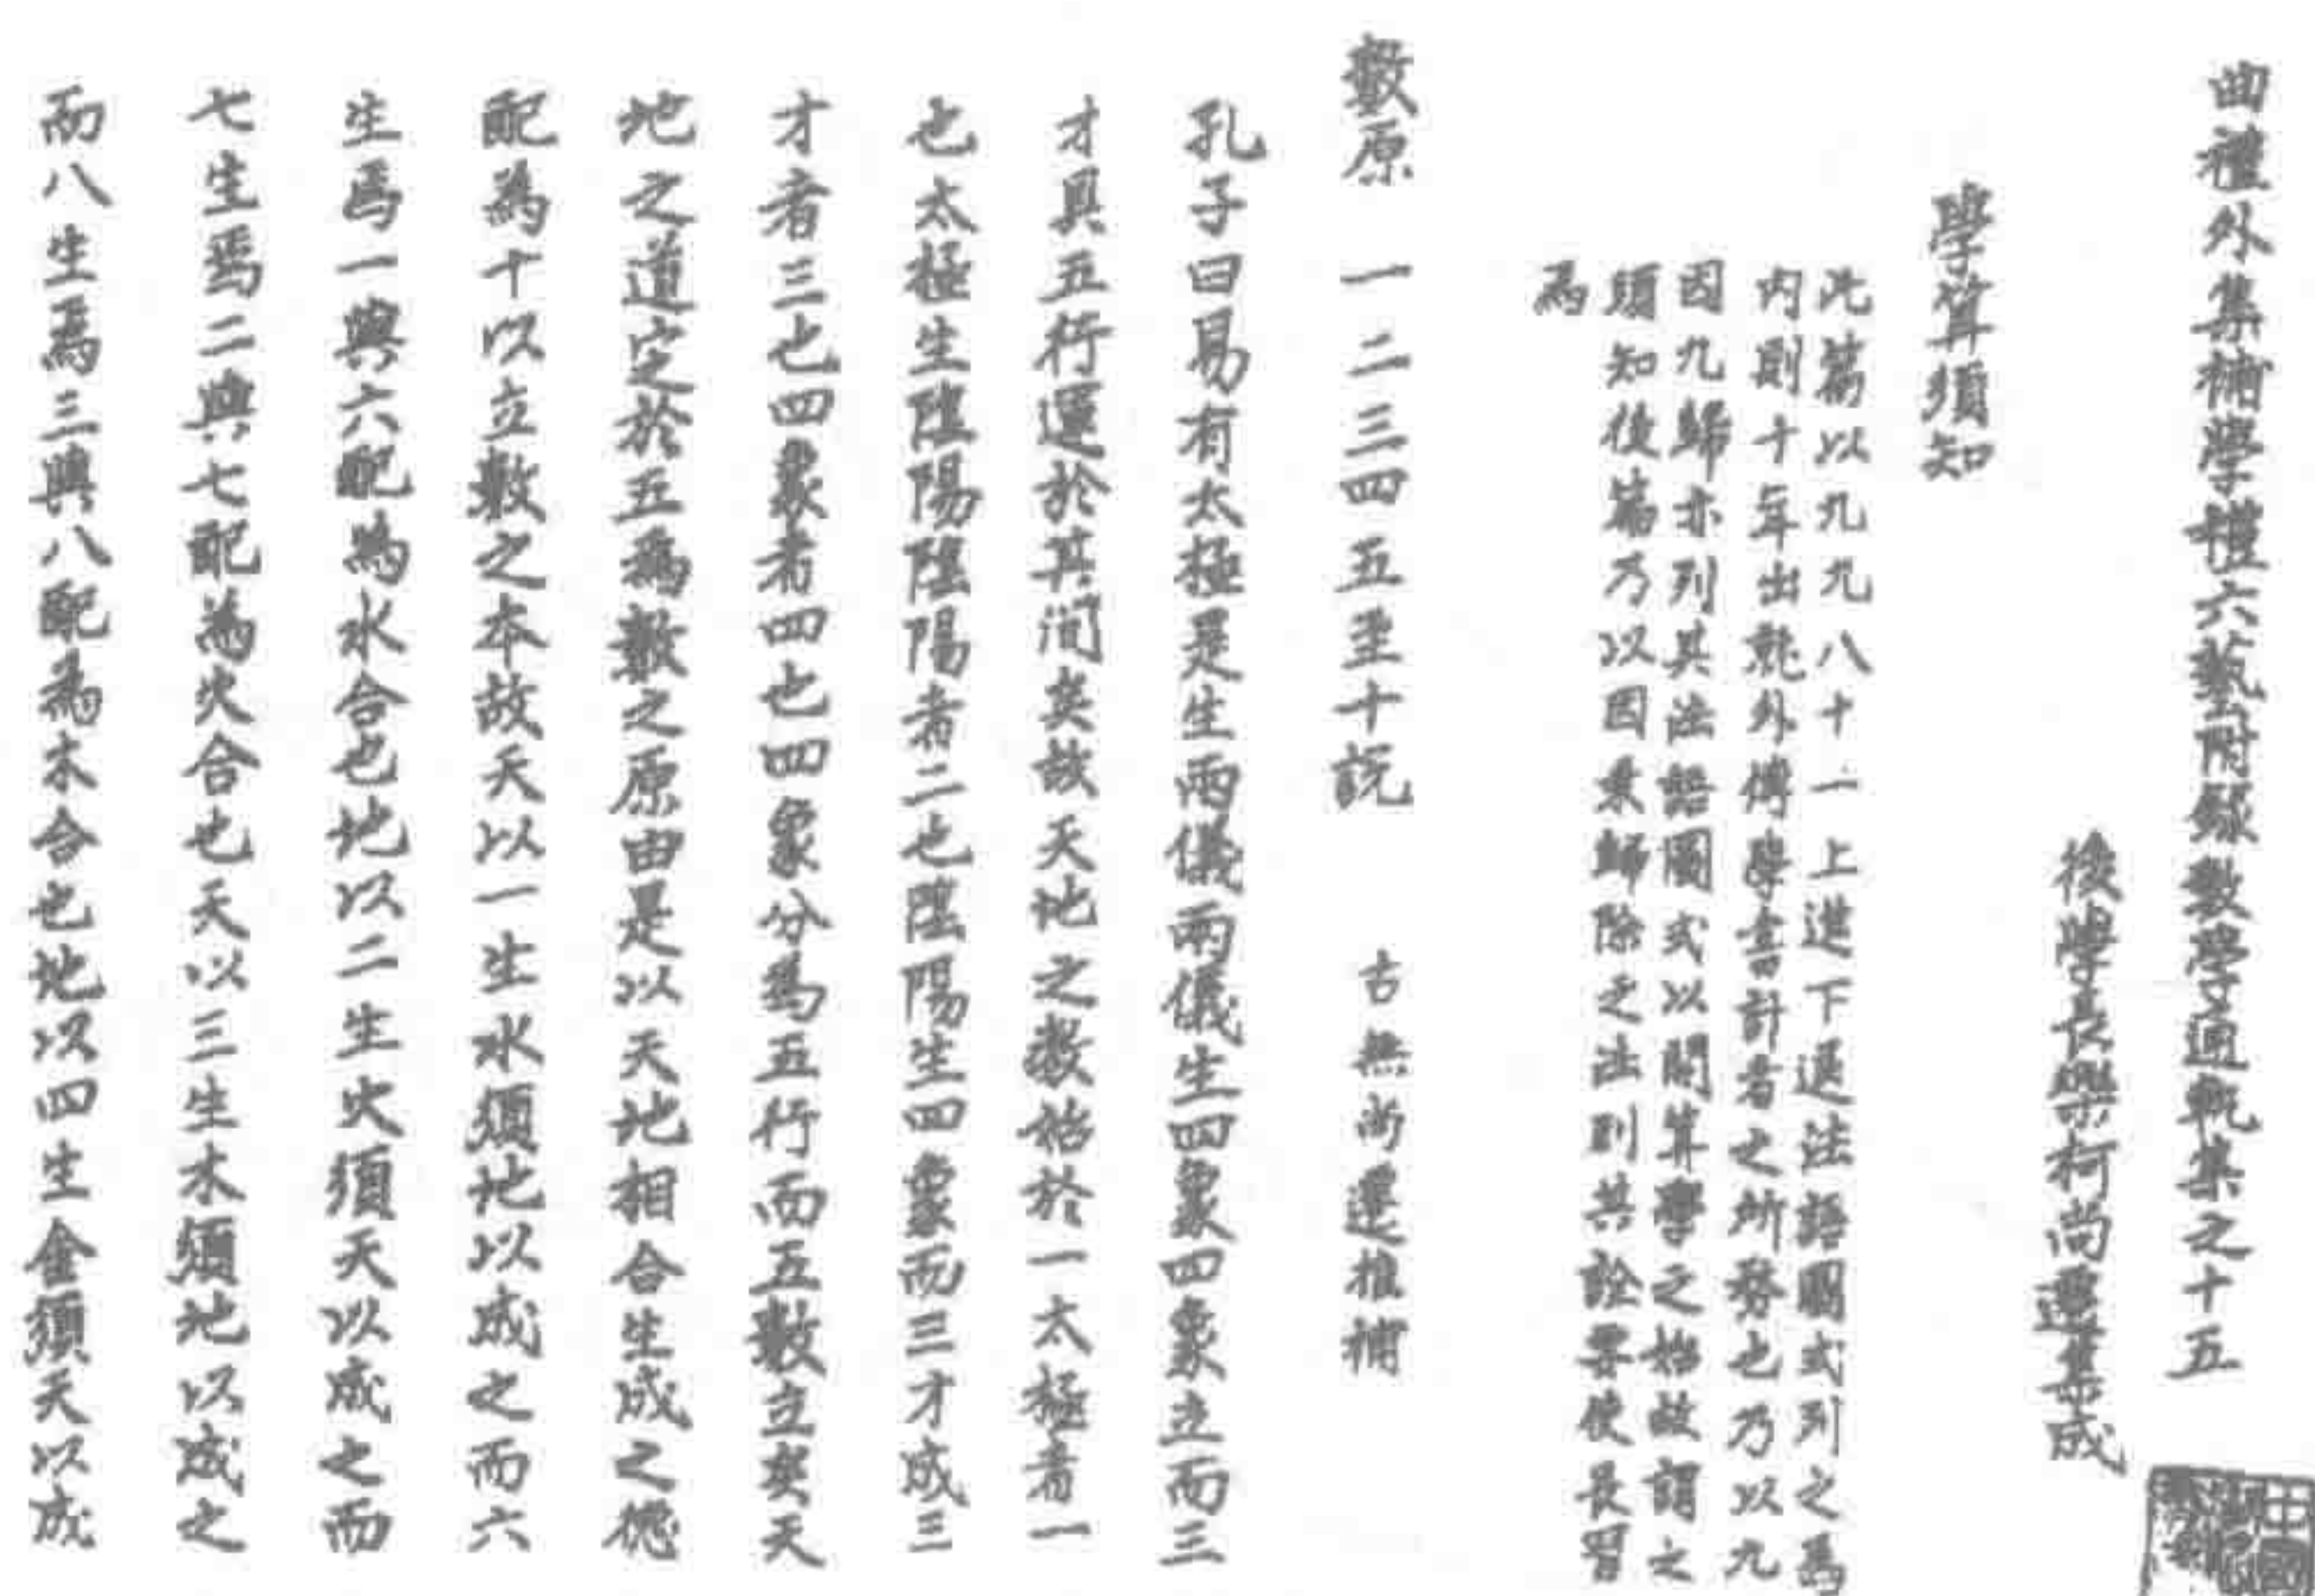 曲禮外集補學禮六藝附錄數學通軌集之十五
後學長樂柯尚遷集成
學算須知
此篇以九九八十一上進下退法語圖式列之爲
內則十年出就外傅學書計者之所務也乃以九
因九歸亦列其法語圖式以開算學之始故謂之
須知後篇乃以因乘歸除之法則其訟要使長習
爲
數原 一二三四五至十説 古無尚遷推補
孔子曰易有太極是生兩儀兩儀生四象四象立而三
才具五行運於其間矣故天地之數始於一太極者一
也太極生陰陽陰陽者二也陰陽生四象而三才成三
才者三也四象者四也四象分爲五行而五數立矣天
地之道定於五爲數之原由是以天地相合生成之德
配為十以立數之本故天以一生水須地以成之而六
生焉一與六配為水合也地以二生火須天以成之而
七生焉二與七配為火合也天以三生木須地以成之
而八生焉三與八配為木合也地以四生金須天以成